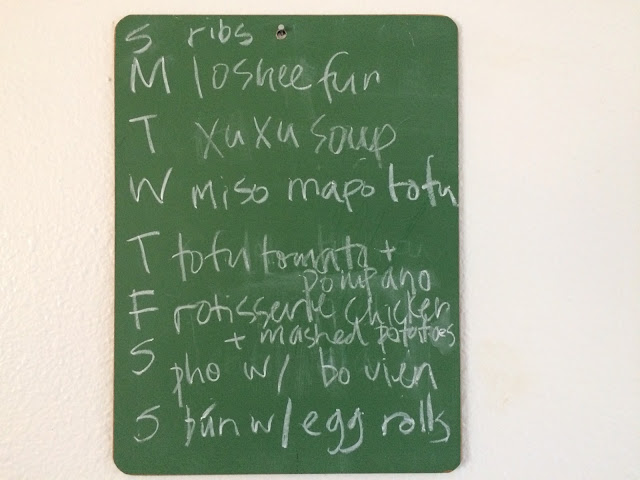 S ribs
M loshee fun
T xu xu soup
W miso mapo tofu
T tofu tomato +
pompano
F rotisserie chicken
+ mashed potatoes
S pho w/ bo vien
S bún w/ egg rolls